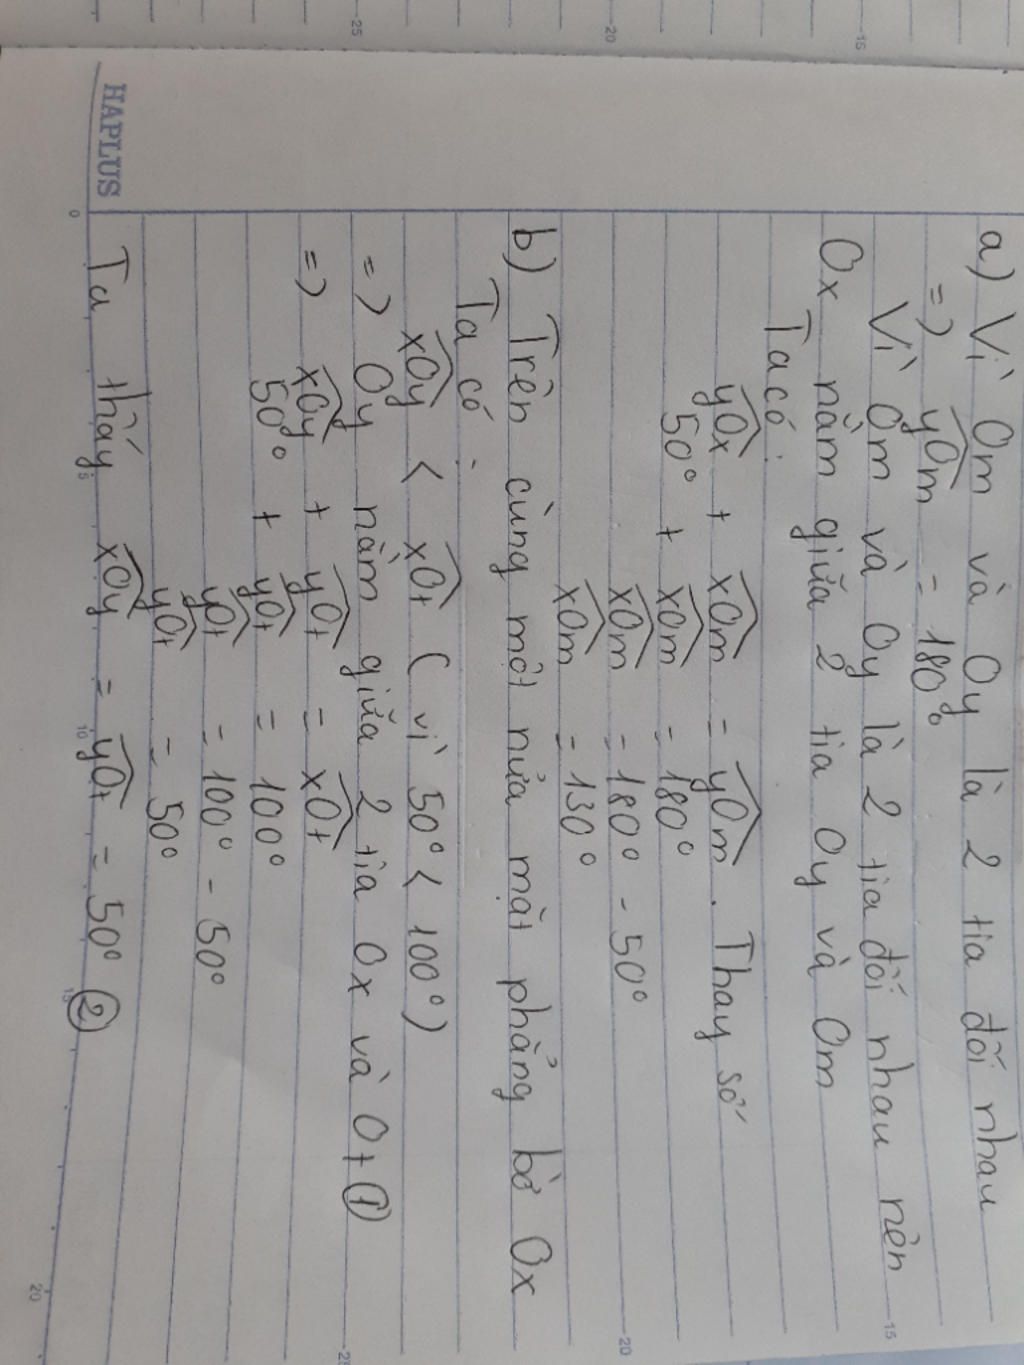 HAPLUS
a) Vì Om và Oy là 2 tia đối nhau
=) yOm = 180°
Vì Om và Oy là 2 tia đối nhau nên
Ox nằm giữa 2 tia Oy và Om
Ta có:
yOx + xOm = yOm. Thay số
50° + xOm = 180°
xOm = 180° - 50°
xOm = 130°
b) Trên cùng một nửa mặt phẳng bờ Ox
Ta có:
xOy < xOt ( vì 50° < 100°)
=) Oy nằm giữa 2 tia Ox và Ot ①
=) xOy + yOt = xOt
50° + yOt = 100°
yOt = 100° - 50°
yOt = 50°
Ta thấy xOy = yOt = 50° ②
0 5 10 15 20
25 20 15
25 20 15